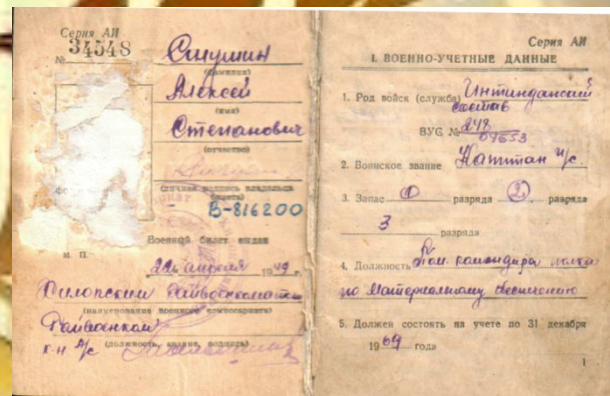 Серия АИ
№ 34548
(фамилия)
Алексей
(имя)
Степанович
(отчество)
(личная подпись владельца
билета)
В-816200
Военный билет выдан
М. П.
22 апреля 1949 г.
райвоенкоматом
(наименование военного комиссариата)
Райвоенком
к-н а/с
(должность, звание, подпись)
Серия АИ
I. ВОЕННО-УЧЕТНЫЕ ДАННЫЕ
1. Род войск (служба) Интенданский
состав
ВУС №
2. Воинское звание Капитан и/с
3. Запас 1 разряда 2 разряда
3 разряда
4. Должность Пом. командира полка
по материальному обеспечению
5. Должен состоять на учете по 31 декабря
1969 года
1